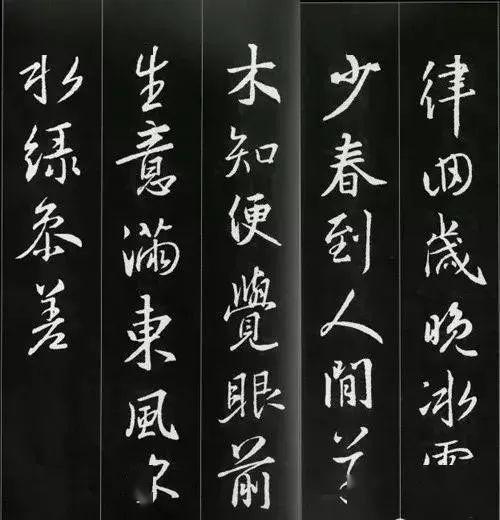 律回歲晚冰
少春到人間
木知便覺眼前
生意滿東風
水綠參差